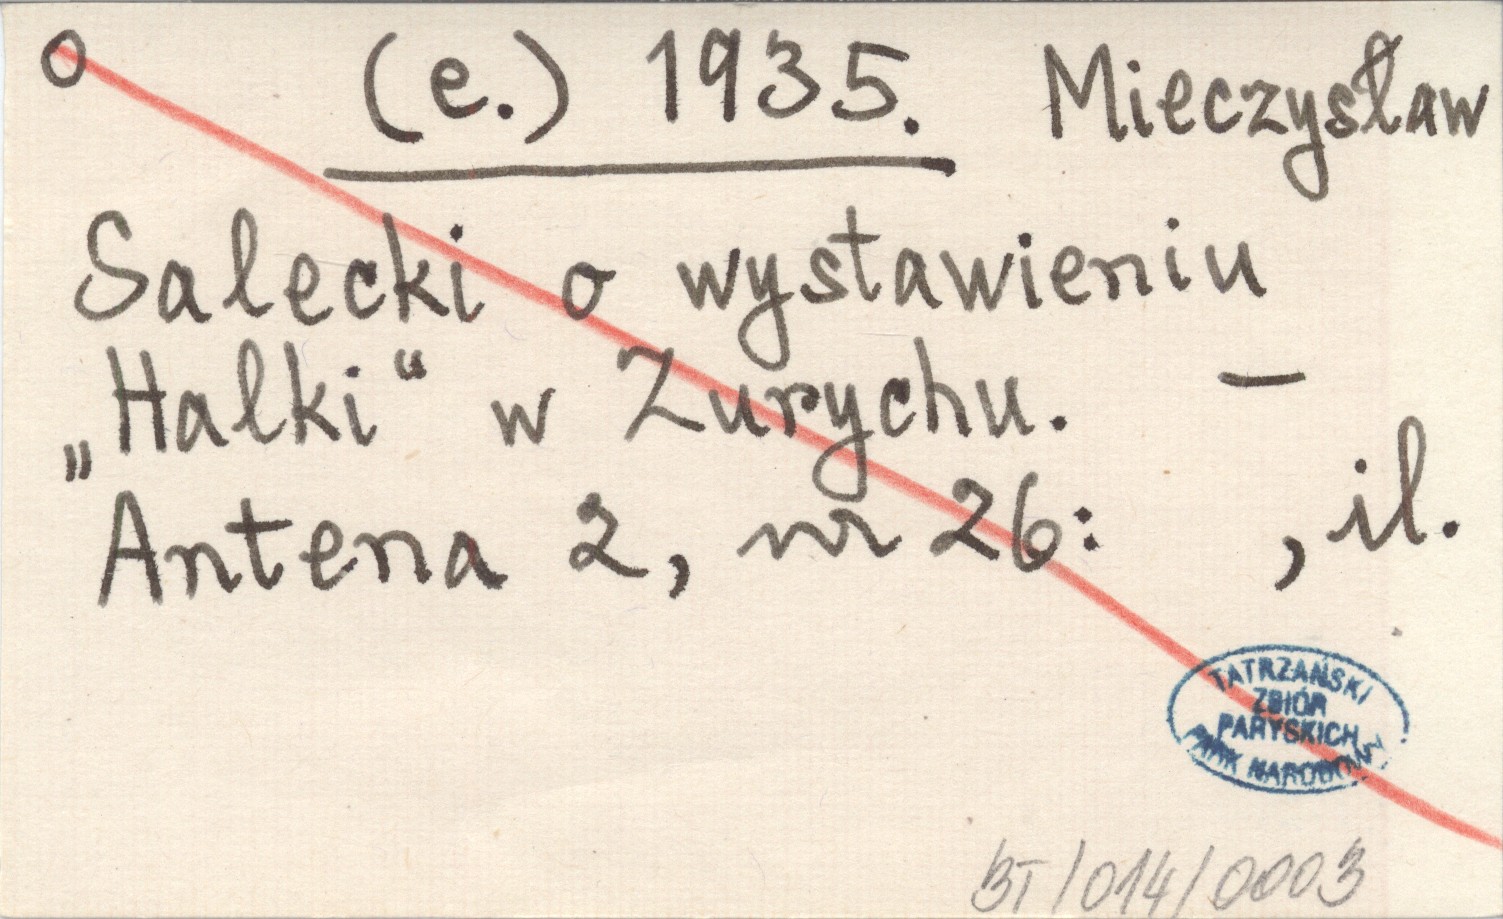 o (e.) 1935. Mieczysław
Salecki o wystawieniu
„Halki“ w Zurychu. —
Antena 2, nr 26: , il.
TATRZAŃSKI
ZBIÓR
PARYSKICH
PARK NARODOWY
BT/014/0003